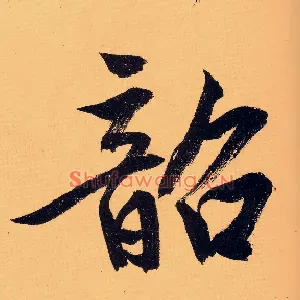 韶
Shufawang.CN